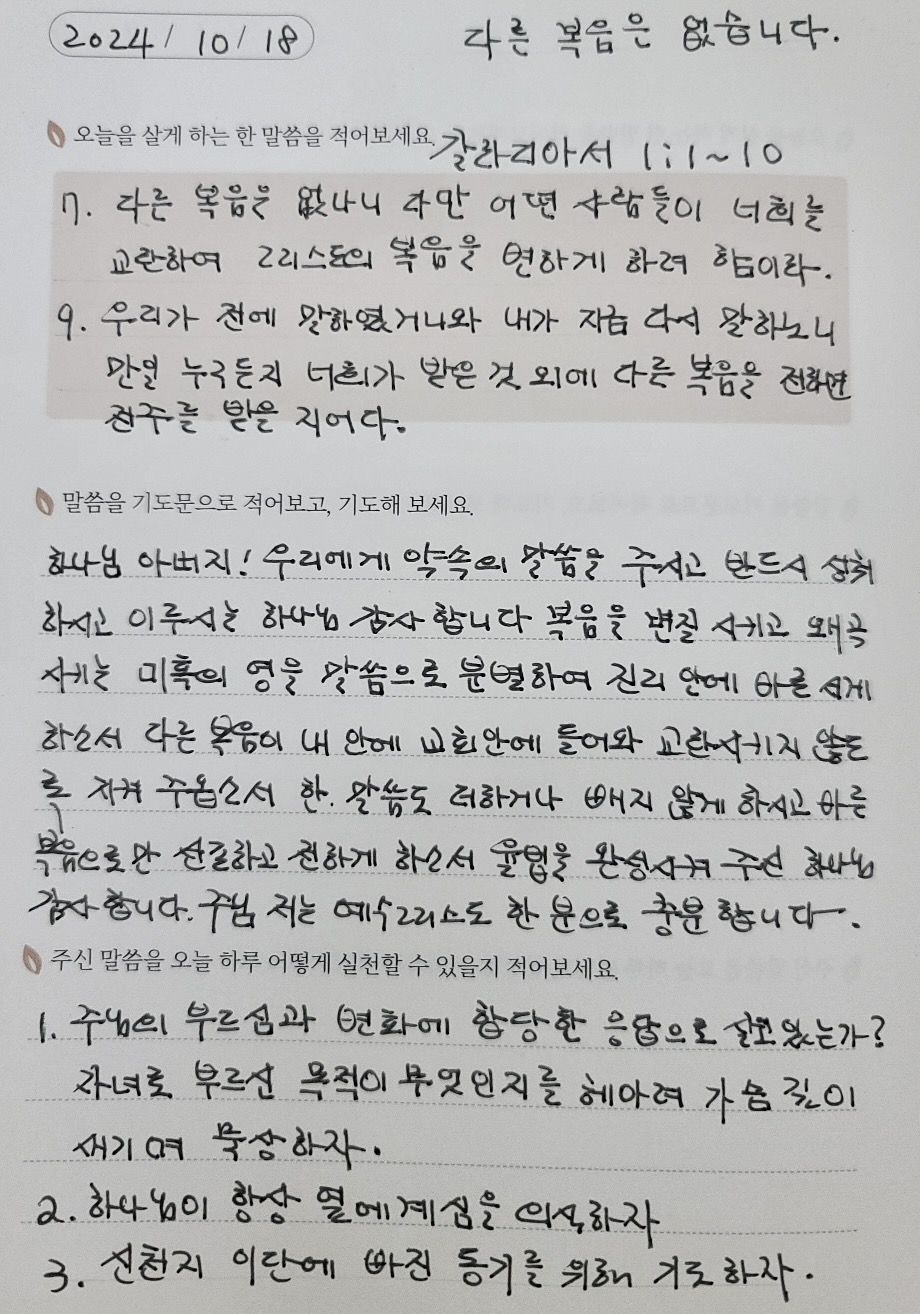 2024/10/18 다른 복음은 없습니다.
오늘을 살게 하는 한 말씀을 적어보세요. 갈라디아서 1:1~10
7. 다른 복음을 없나니 다만 어떤 사람들이 너희를
교란하여 그리스도의 복음을 변하게 하려 함이라.
9. 우리가 전에 말하였거니와 내가 지금 다시 말하노니
만일 누구든지 너희가 받은 것 외에 다른 복음을 전하면
저주를 받을 지어다.
말씀을 기도문으로 적어보고, 기도해 보세요.
하나님 아버지! 우리에게 약속의 말씀을 주시고 반드시 성취
하시고 이루시는 하나님 감사합니다 복음을 변질 시키고 왜곡
시키는 미혹의 영을 말씀으로 분별하여 진리 안에 바른 서게
하소서 다른 복음이 내 안에 교회안에 들어와 교란시키지 않도
록 지켜 주옵소서 한. 말씀도 더하거나 빼지 않게 하시고 바른
복음으로만 선포하고 전하게 하소서 율법을 완성시켜 주신 하나님
감사합니다. 주님 저는 예수그리스도 한 분으로 충분합니다.
주신 말씀을 오늘 하루 어떻게 실천할 수 있을지 적어보세요.
1. 주님의 부르심과 변화에 합당한 응답으로 살고있는가?
자녀로 부르신 목적이 무엇인지를 헤아려 가슴 깊이
새기며 묵상하자.
2. 하나님이 항상 옆에계심을 의식하자
3. 신천지 이단에 빠진 동기를 위해 기도하자.